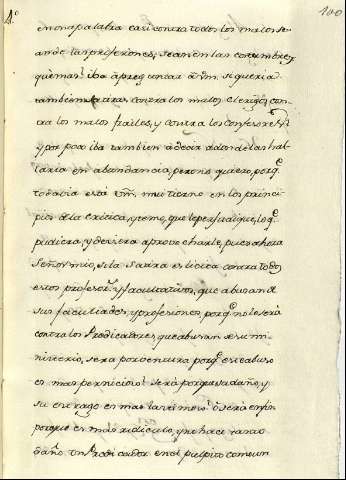 4º 100
en una palabra casi contra todos los malos se-
an de las profesiones, sean en las costumbres,
qè mas? iba à preguntar à Vm. si queria
tambien tratar contra los malos clerigos, con-
tra los malos frailes, y contra los confesores,
y por poco iba tambien à decir adonde los hal-
laria en abundancia, pero no quiero, porq.e
todavia está Vm. mui tierno en los princi-
pios de la critica, y temo, que le perjudique, lo q.e
pudiera, y deviera aprovecharle, pues ahora
Señor mio, si la Satira es licita contra todos
estos profesores, y facultativos, que abusan de
sus facultades, y profesiones, porq.e no lo será
contra los Predicadores, que abusan de su mi-
nisterio, será por ventura porq.e ese abuso
es mas pernicioso? será porque su daño, y
su estrago es mas lastimoso? ò será en fin
porque es mas ridiculo, que hace tanto
daño. Un Predicador en el pulpito como un